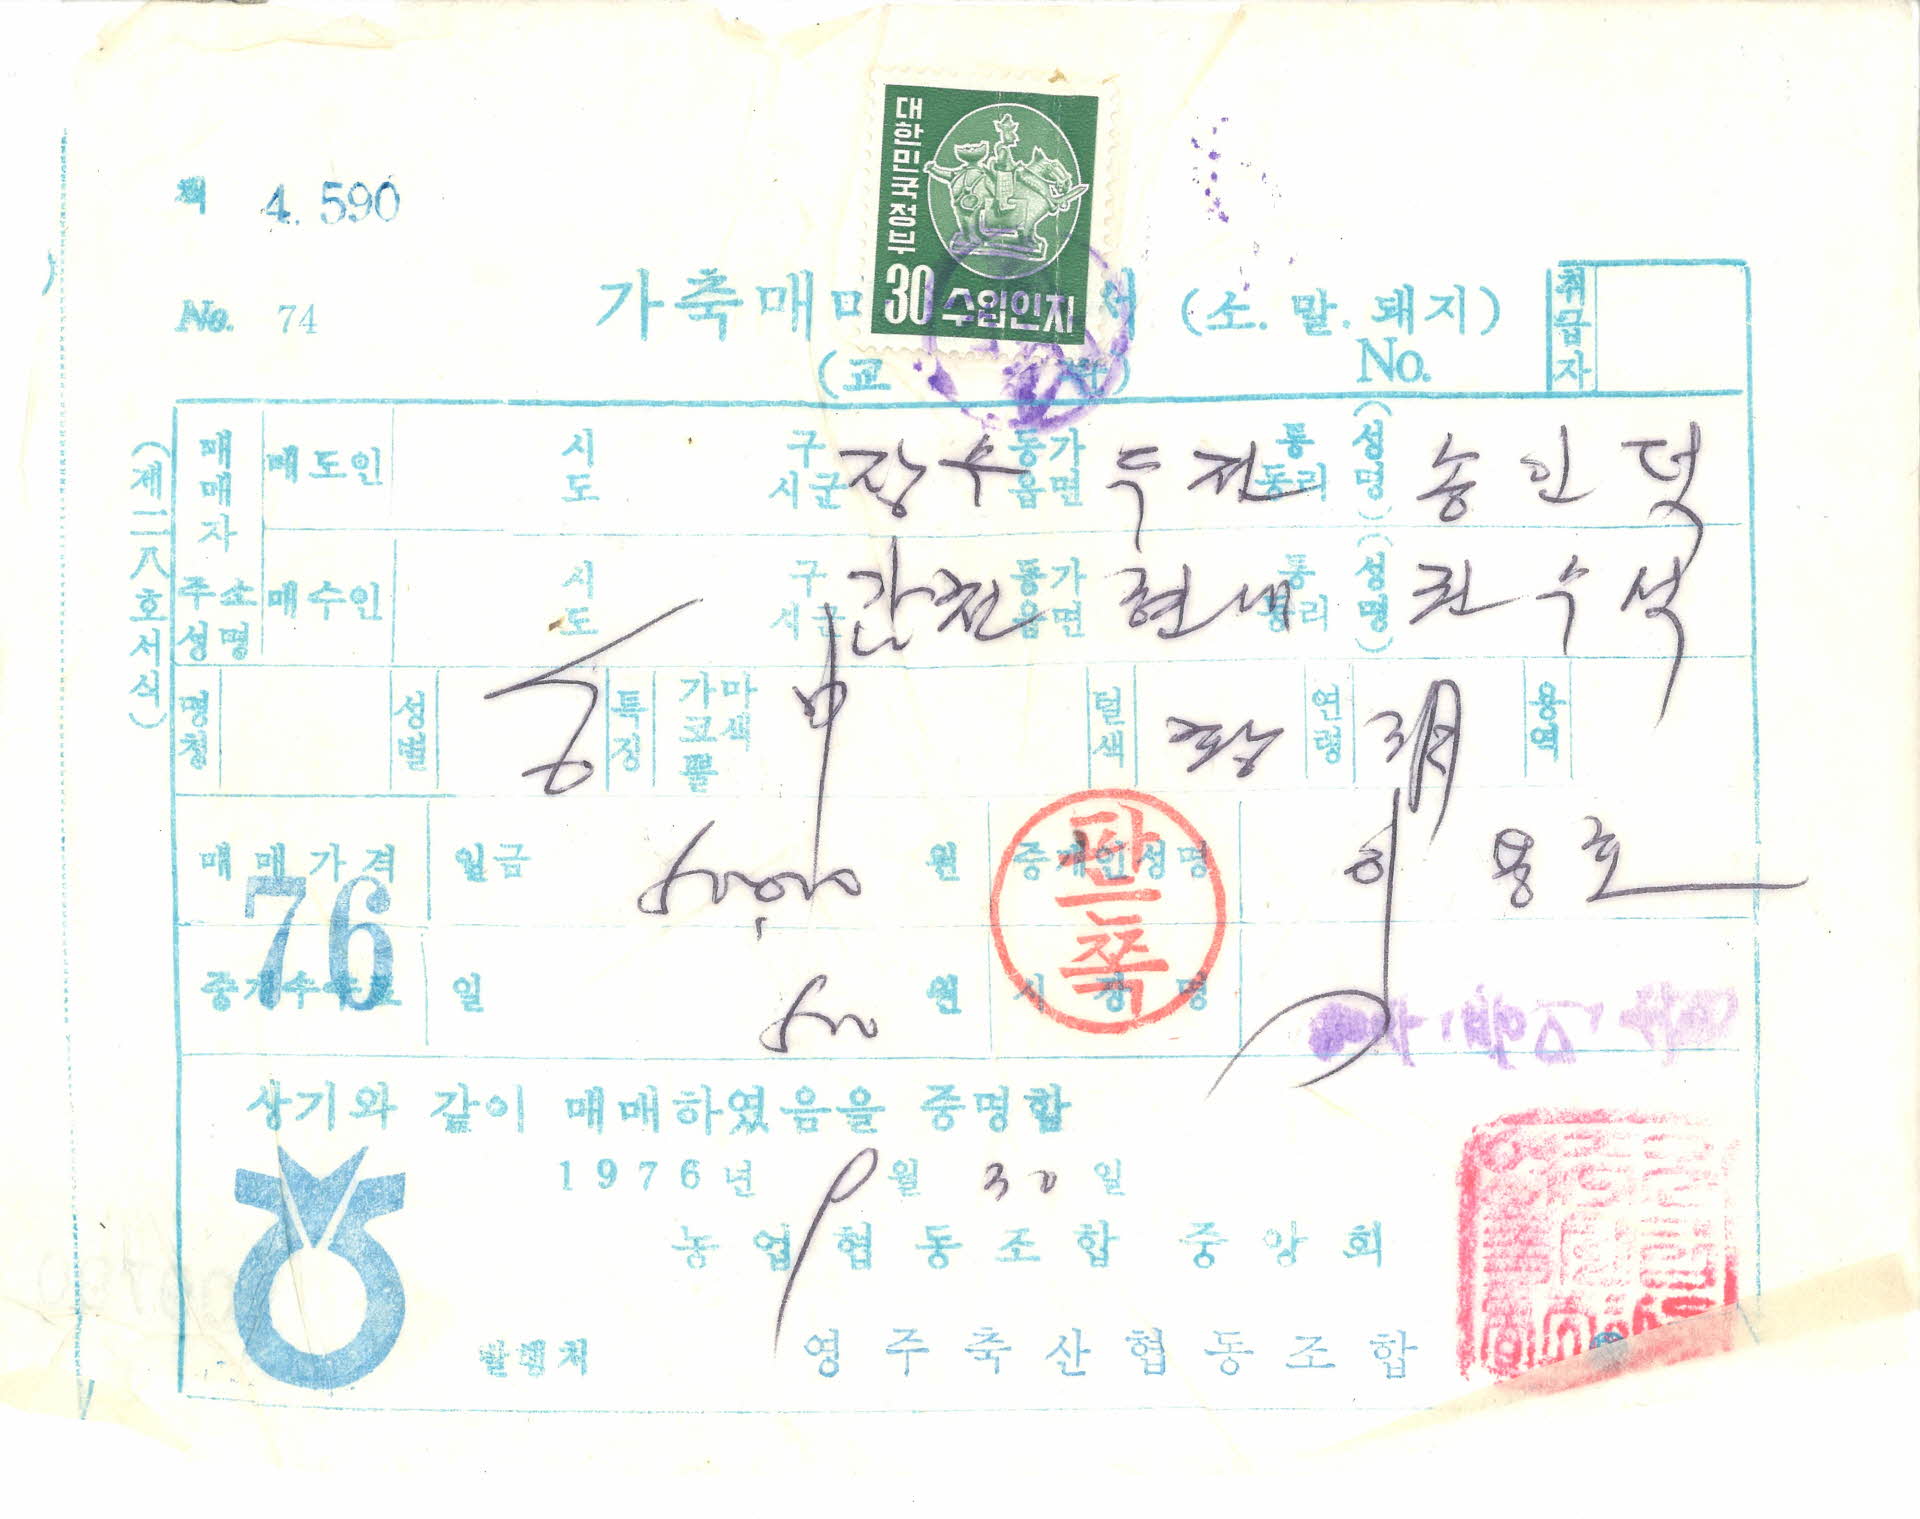 제 4.590
대한민국정부
30 수입인지
No. 74
가축매매
(소. 말. 돼지)
취급자
(교
No.
(제二八호서식)
매매자 주소 성명
매도인 시 도 구 시군 장수 동가 읍면 두전 통 동리 (성명) 송인덕
매수인 시 도 구 시군 동가 읍면 현내 통 동리 (성명) 권수석
명칭 성별 특징 가마 코색 뿔 털색 황 연령 용역
매매가격 일금 원 중개인성명 이용호
76
판쪽
일 원 시장명
상기와 같이 매매하였음을 증명함
1976년 9월 30일
농업협동조합 중앙회
발행처 영주축산협동조합